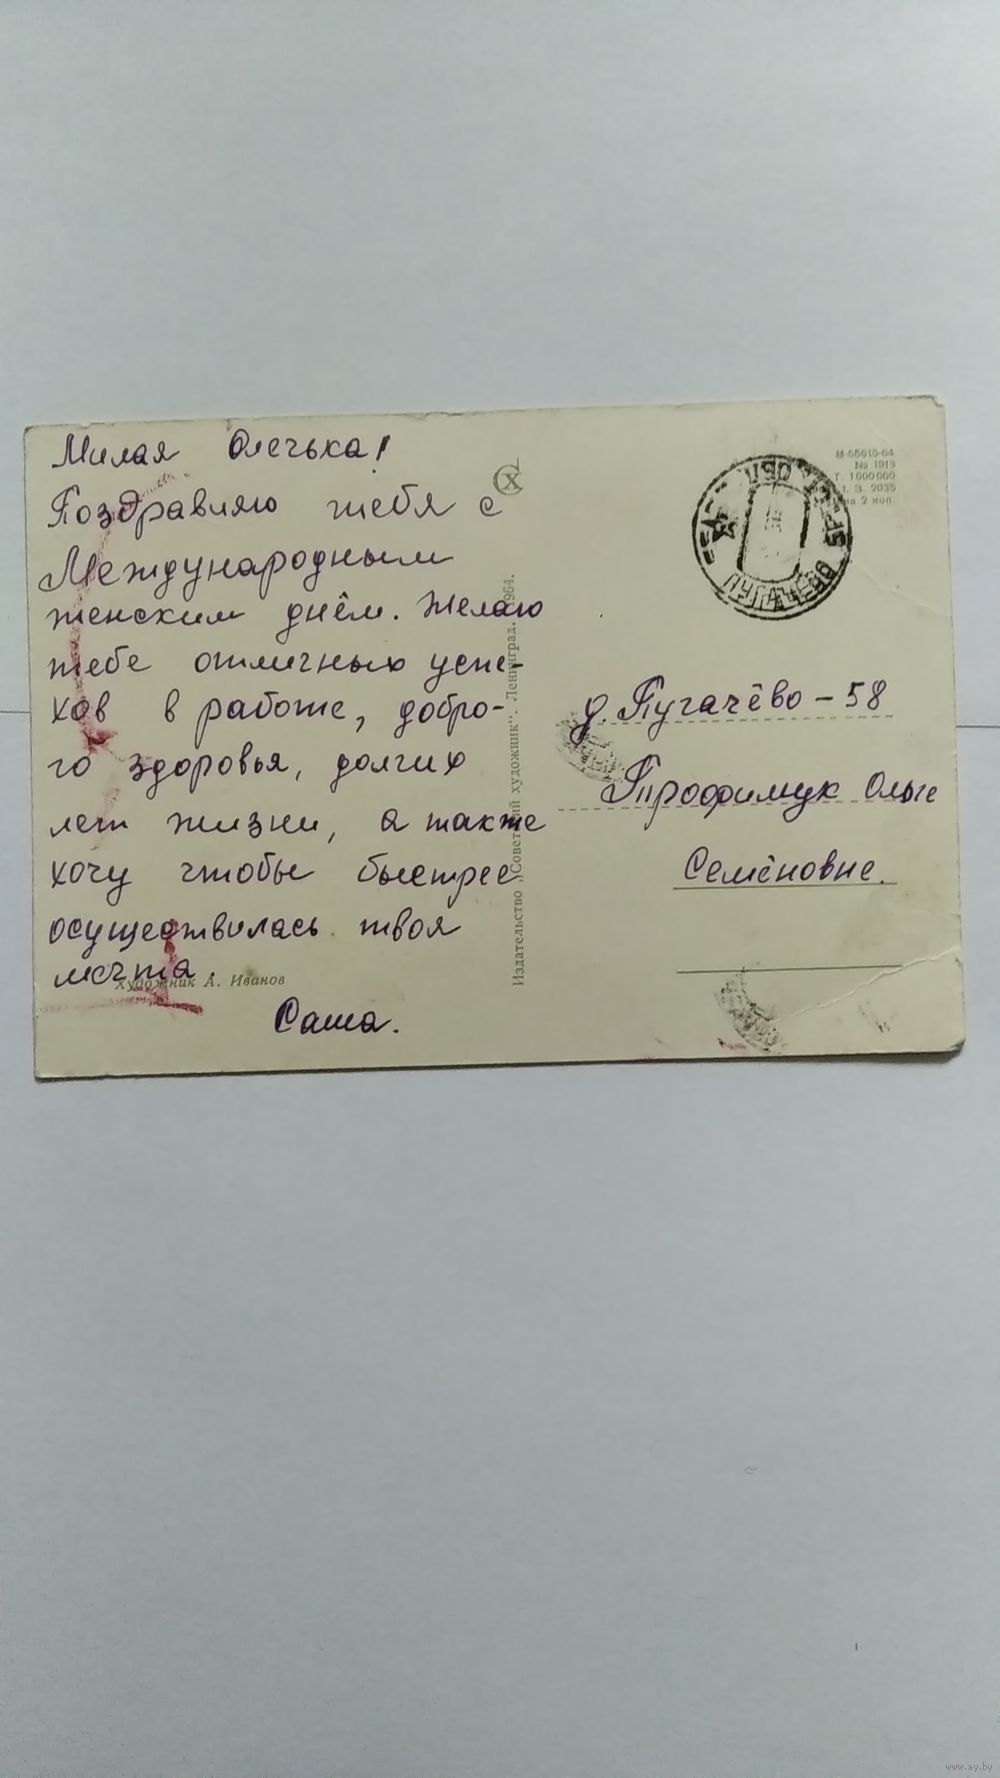 Милая Олечька!
Поздравляю тебя с
Международным
женским днём. Желаю
тебе отличных успе-
хов в работе, добро-
го здоровья, долгих
лет жизни, а также
хочу чтобы быстрее
осуществилась твоя
мечта.
Саша.
Художник А. Иванов
Издательство „Советский художник". Ленинград. 1964.
М-55615-64
№ 1913
Т. 1 000 000
З. 2035
2 коп.
ПУГАЧЕВО
д. Пугачёво - 58
Трофимук Ольге
Семёновне.
www.ay.by